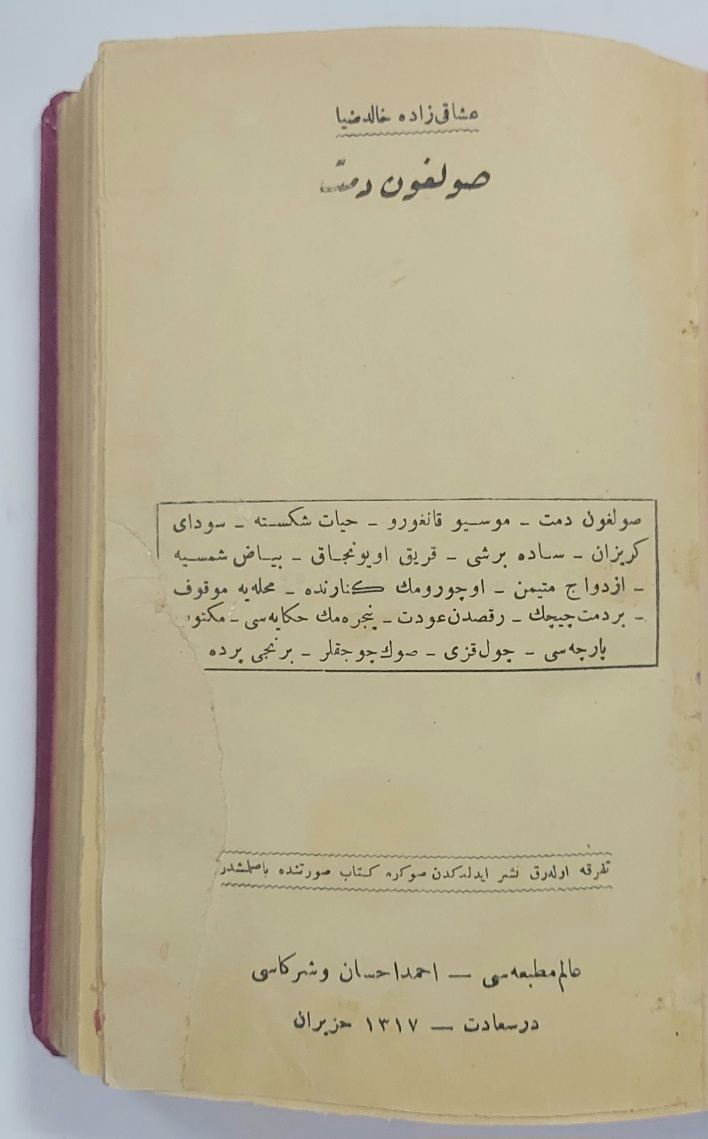 عشاقی زاده خالد ضیا
صولغون دمت
صولغون دمت ـ موسیو قانغورو ـ حیات شکسته ـ سودای
کریزان ـ ساده برشی ـ قریق اویونجاق ـ بیاض شمسیه
ـ ازدواج متیمن ـ اوچورومك کنارنده ـ محله یه موقوف
ـ بردمت چیچك ـ رقصدن عودت ـ پنجره مك حکایه سی ـ مکتوب
پارچه سی ـ چول قزی ـ صوك چوجقلر ـ برنجی پرده
تفرقه اوله رق نشر ایدلدکدن صوکره کتاب صورتنده باصلمشدر
عالم مطبعه سی — احمد احسان وشرکاسی
درسعادت — ۱۳۱۷ حزیران